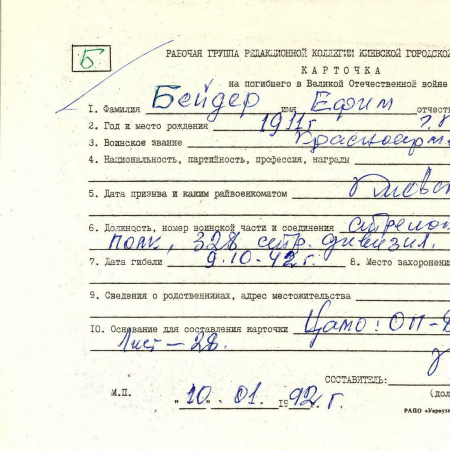 Б
РАБОЧАЯ ГРУППА РЕДАКЦИОННОЙ КОЛЛЕГИИ КИЕВСКОЙ ГОРОДСКОЙ
КАРТОЧКА
на погибшего в Великой Отечественной войне
1. Фамилия Бейдер имя Ефим отчест
2. Год и место рождения 1911г.
3. Воинское звание Красноарм
4. Национальность, партийность, профессия, награды
5. Дата призыва и каким райвоенкоматом
6. Должность, номер воинской части и соединения
полк, 328 стр. дивизия.
7. Дата гибели 9.10-42г. 8. Место захоронен
9. Сведения о родственниках, адрес местожительства
10. Основание для составления карточки Цамо: ОП-
Лист-28.
СОСТАВИТЕЛЬ:
М.П. "10" 01. 1992 г. (дол
РАПО «Укрвуз